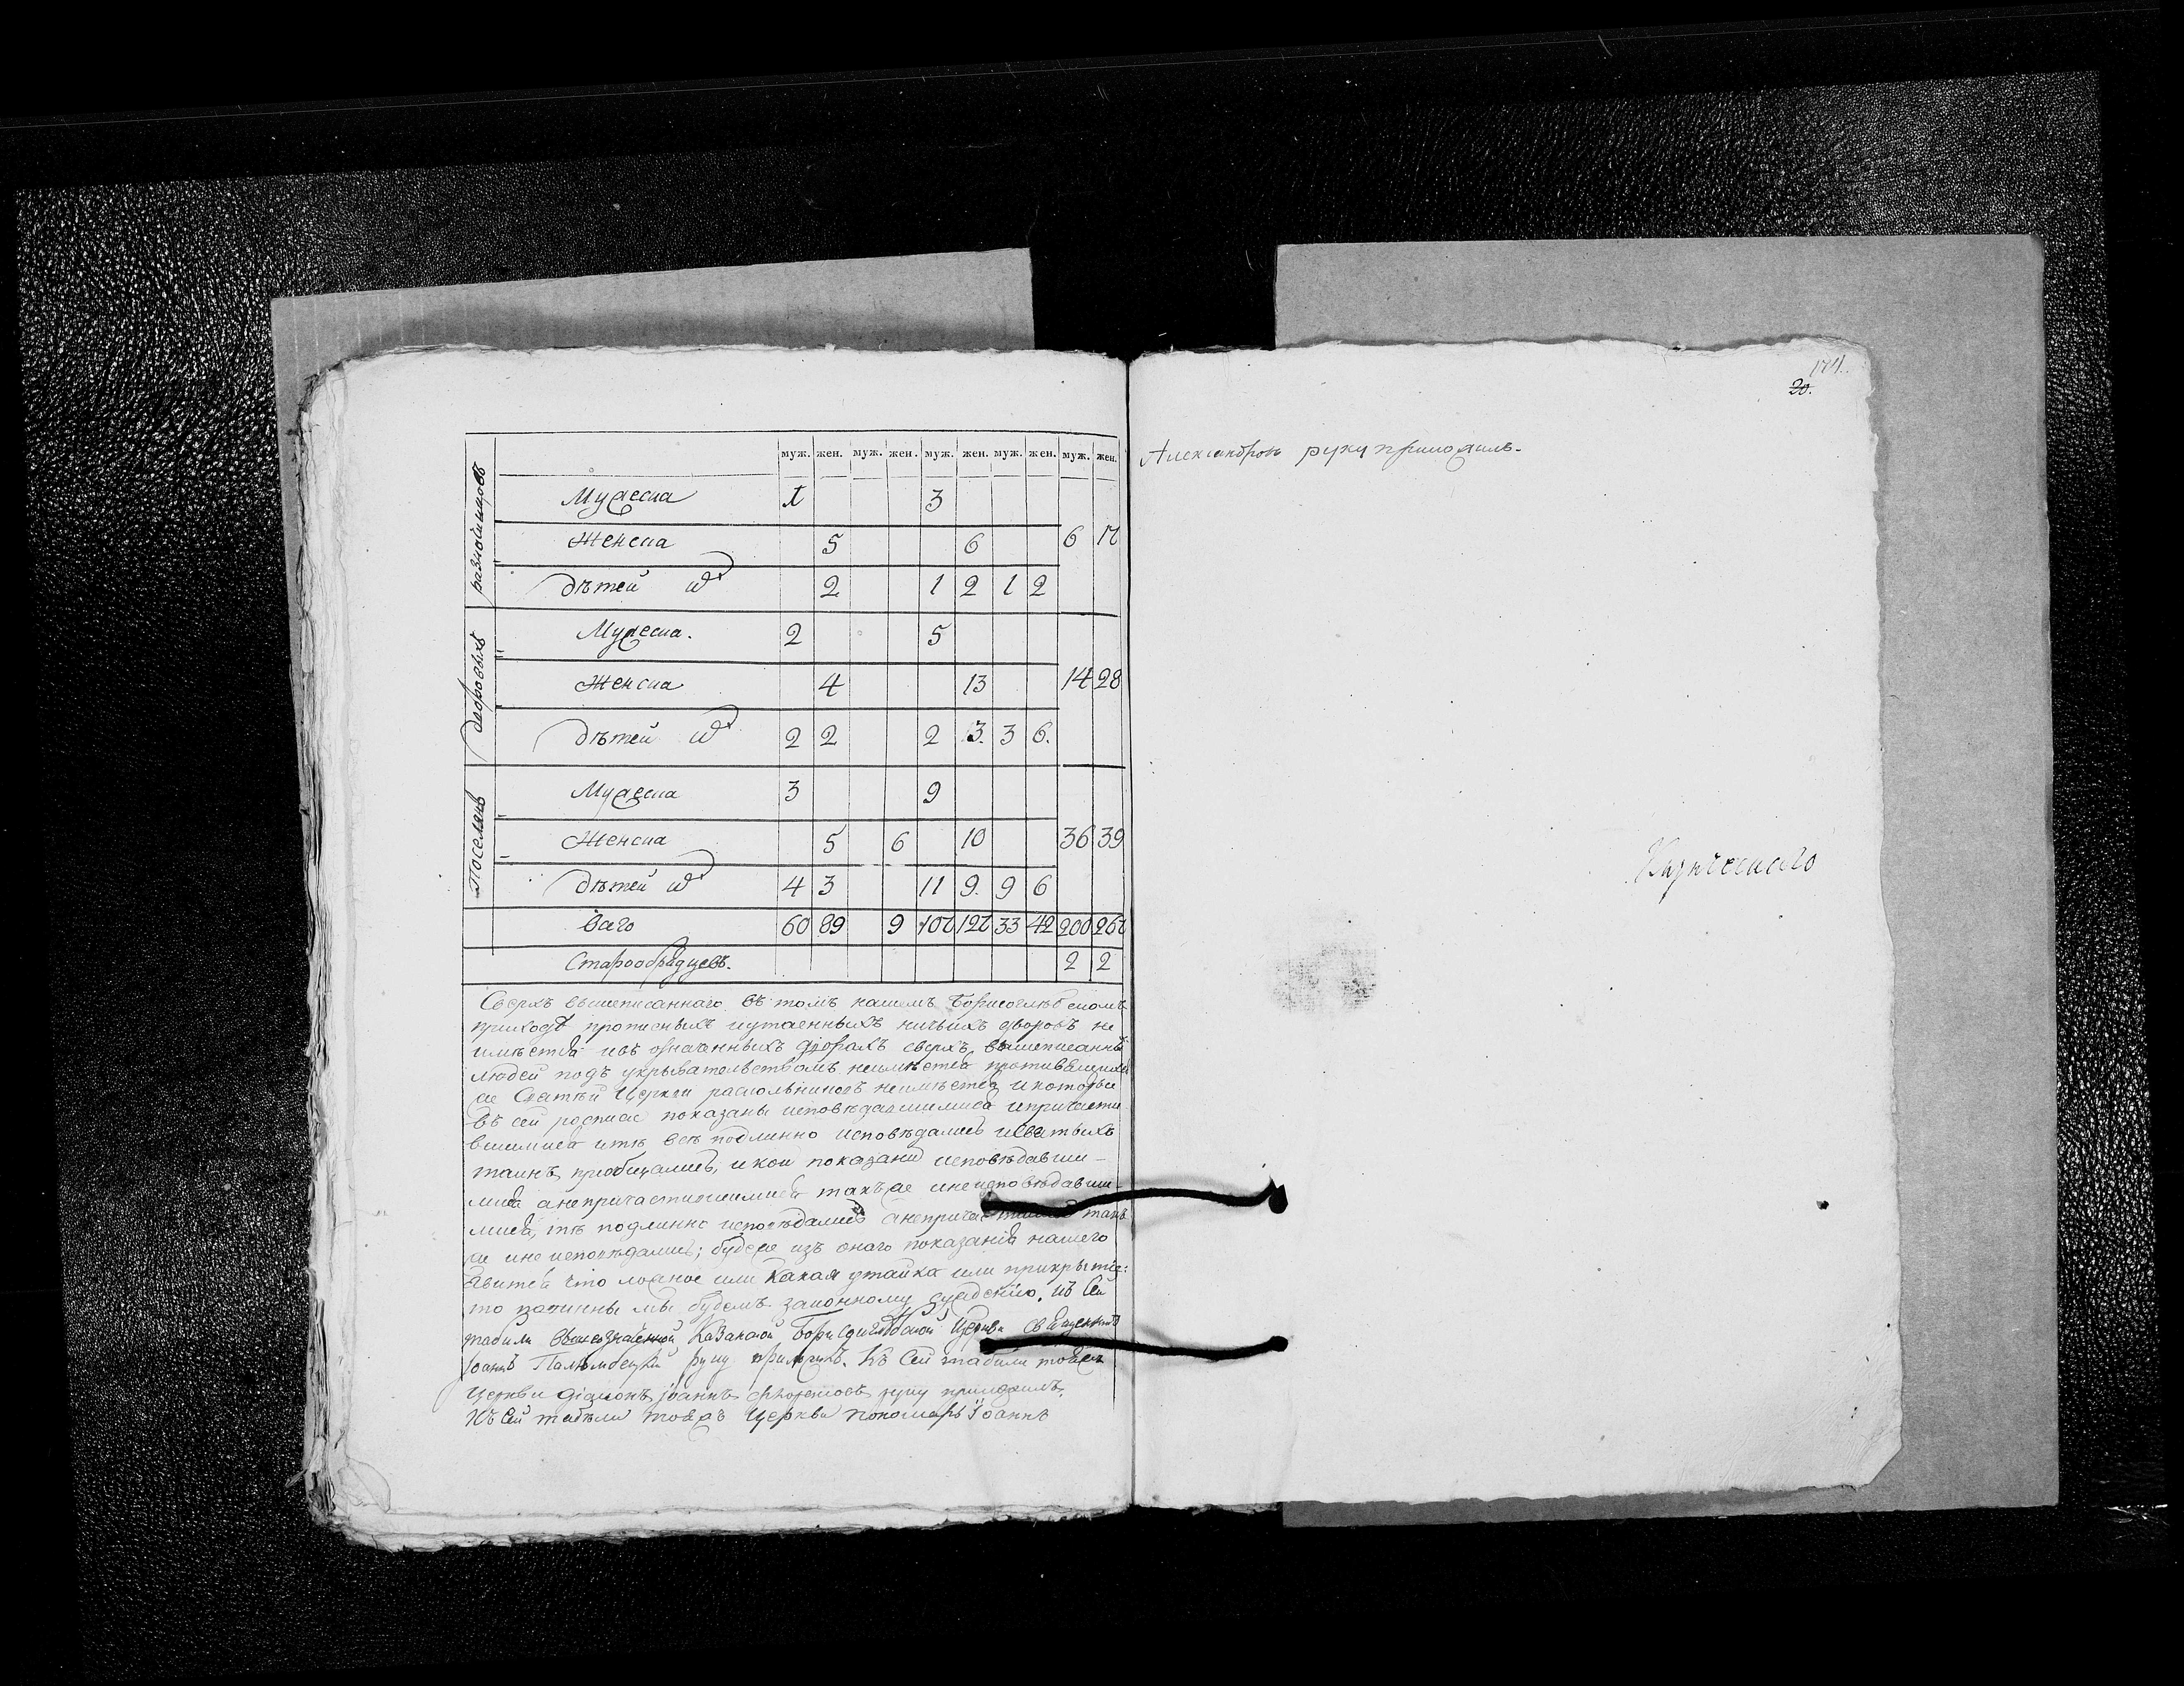 муж. жен. муж. жен. муж. жен. муж. жен. муж. жен.
разночинцовъ
Мужеска 1 3
Женска 5 6 6 17
дѣтей их 2 1 2 1 2
дворовыхъ
Мужеска. 2 5
Женска 4 13 14 28
дѣтей их 2 2 2 3. 3 6.
Поселянъ
Мужеска 3 9
Женска 5 6 10 36 39
дѣтей их 4 3 11 9. 9 6
Всего 60 89 9 107 127 33 42 200 267
Старообрядцевъ. 2 2
Сверхъ вышеписаннаго въ томъ нашемъ Борисоглѣбскомъ
приходѣ прописныхъ иутаенныхъ ничьихъ дворовъ не
имѣется ивъ означенныхъ дворахъ сверхъ вышеписанны
людей подъ укрывательствомъ неимѣется
же Святѣй Церкви раскольниковъ неимѣется икоторые
въ сей росписе показаны исповѣдавшимися ипричасти
вшимися итѣ всѣ подлинно исповѣдались исвятыхъ
таинъ приобщались, икои показаны исповѣдавши-
мися анепричастившимися такъже инеисповѣдавши-
мися, тѣ подлинно исповѣдались анепричастились такъ
же инеисповѣдались; будеже изъ онаго показания нашего
явится что ложное или какая утайка или прикрытіе:
то повинны мы будемъ законному суждению. Къ Сей
табели вышеозначенной Казанской Борисоглѣбской Церкви священникъ
Іоаннъ руку приложилъ. Къ Сей табели тойже
Церкви діаконъ іоаннъ руку приложилъ.
Къ Сей табели тояжъ Церкви пономарь Іоаннъ
20.
Александровъ руку приложилъ.